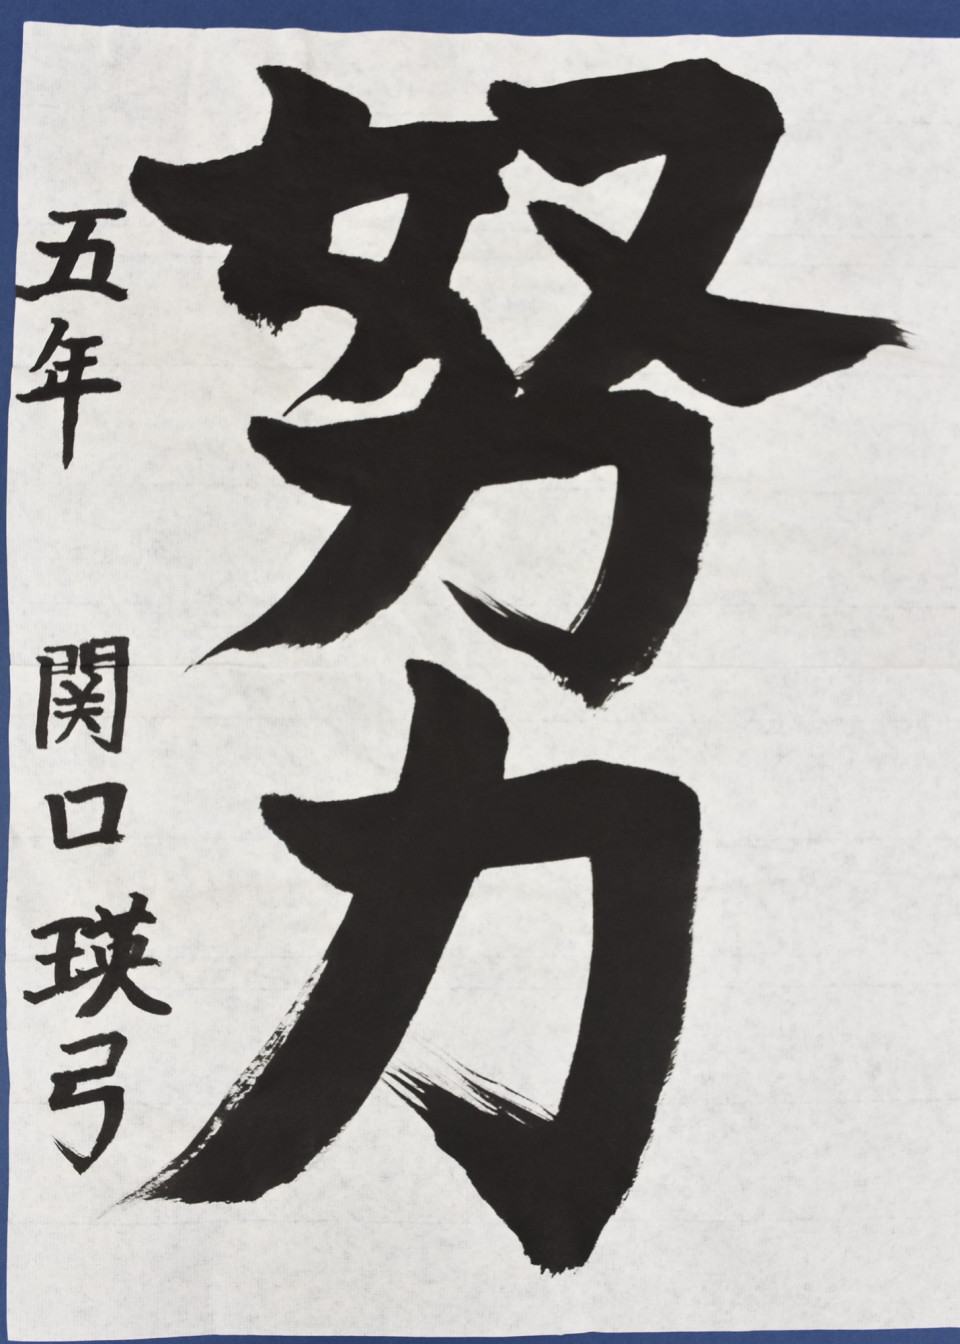 努力
五年 関口瑛弓